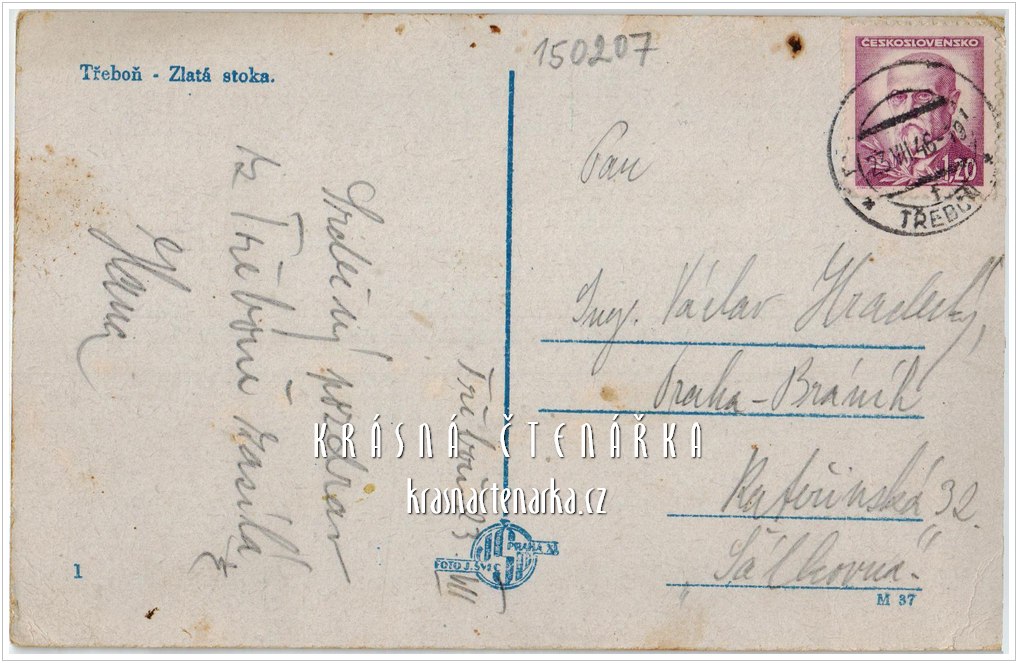 150207
Třeboň - Zlatá stoka.
ČESKOSLOVENSKO
1.20
23.VII.46
TŘEBOŇ 1
Třeboň 23. VII
Srdečný pozdrav
z Třeboně zasílá
Hana
Pan
Ing. Václav Hradecký,
Praha - Bráník
Kateřinská 32.
"Sálkovna."
KRÁSNÁ ČTENÁŘKA
krasnactenarka.cz
FOTO J. ŠVEC PRAHA XI
1
M 37